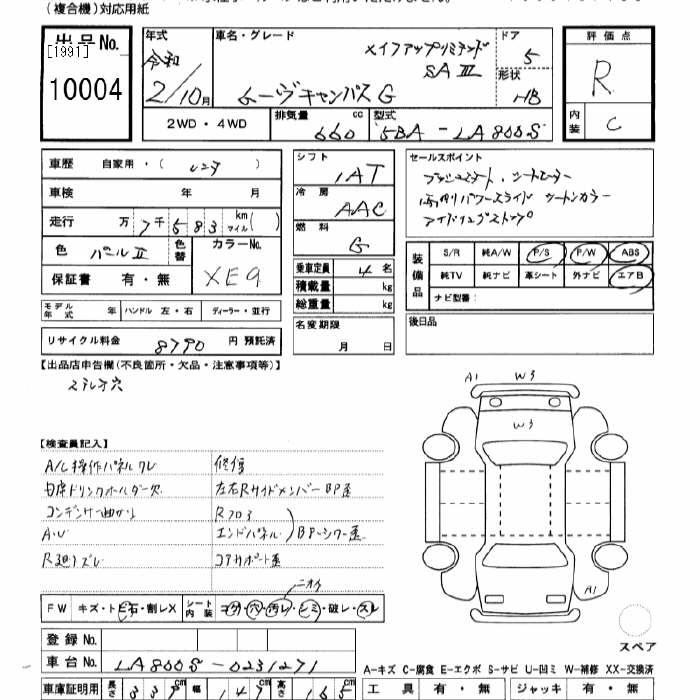 (複合機)対応用紙
出品 No.
[1991]
10004
年式
令和
2/10月
車名・グレード
メイクアップリミテッド
SA III
ムーヴキャンバス G
ドア
5
形状
HB
評価点
R
内装
C
2WD・4WD
排気量
660 cc
型式
5BA-LA800S
車歴 自家用・(レンタ)
車検 年 月
走行 万 7 千 5 8 3 km マイル( )
色 パールII
色替
カラーNo.
XE9
保証書 有・無
シフト
IAT
冷房
AAC
燃料
G
乗車定員 4 名
積載量 kg
総重量 kg
セールスポイント
プッシュスタート、シートヒーター
両側パワースライド ツートンカラー
アイドリングストップ
装備品
S/R 純A/W P/S P/W ABS
純TV 純ナビ 革シート 外ナビ エアB
ナビ型番:
モデル年式 年 ハンドル 左・右 ディーラー・並行
名変期限
月 日
後日品
リサイクル料金 8790 円 預託済
【出品店申告欄(不良箇所・欠品・注意事項等)】
ステレオ穴
【検査員記入】
A/C操作パネルワレ
内席ドリンクホルダー欠
コンデンサー曲がり
A・U
R廻りズレ
修復
左右RサイドメンバーBP歪
Rフロア
エンドパネル
BP・シワ・歪
コアサポート歪
A1 W3
W3
A1
ニオイ
FW キズ・トビ石・割レX シート内装 コゲ・穴・汚レ・シミ・破レ・スレ
登録 No.
車台 No. LA800S-0231271
スペア
A-キズ C-腐食 E-エクボ S-サビ U-凹ミ W-補修 XX-交換済
車庫証明用 長さ 339 cm 幅 147 cm 高さ 165 cm
工具 有・無 ジャッキ 有・無